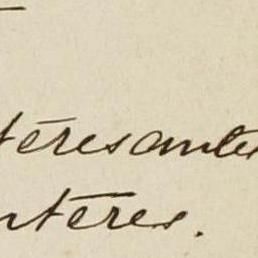 téresantes
ntéres.